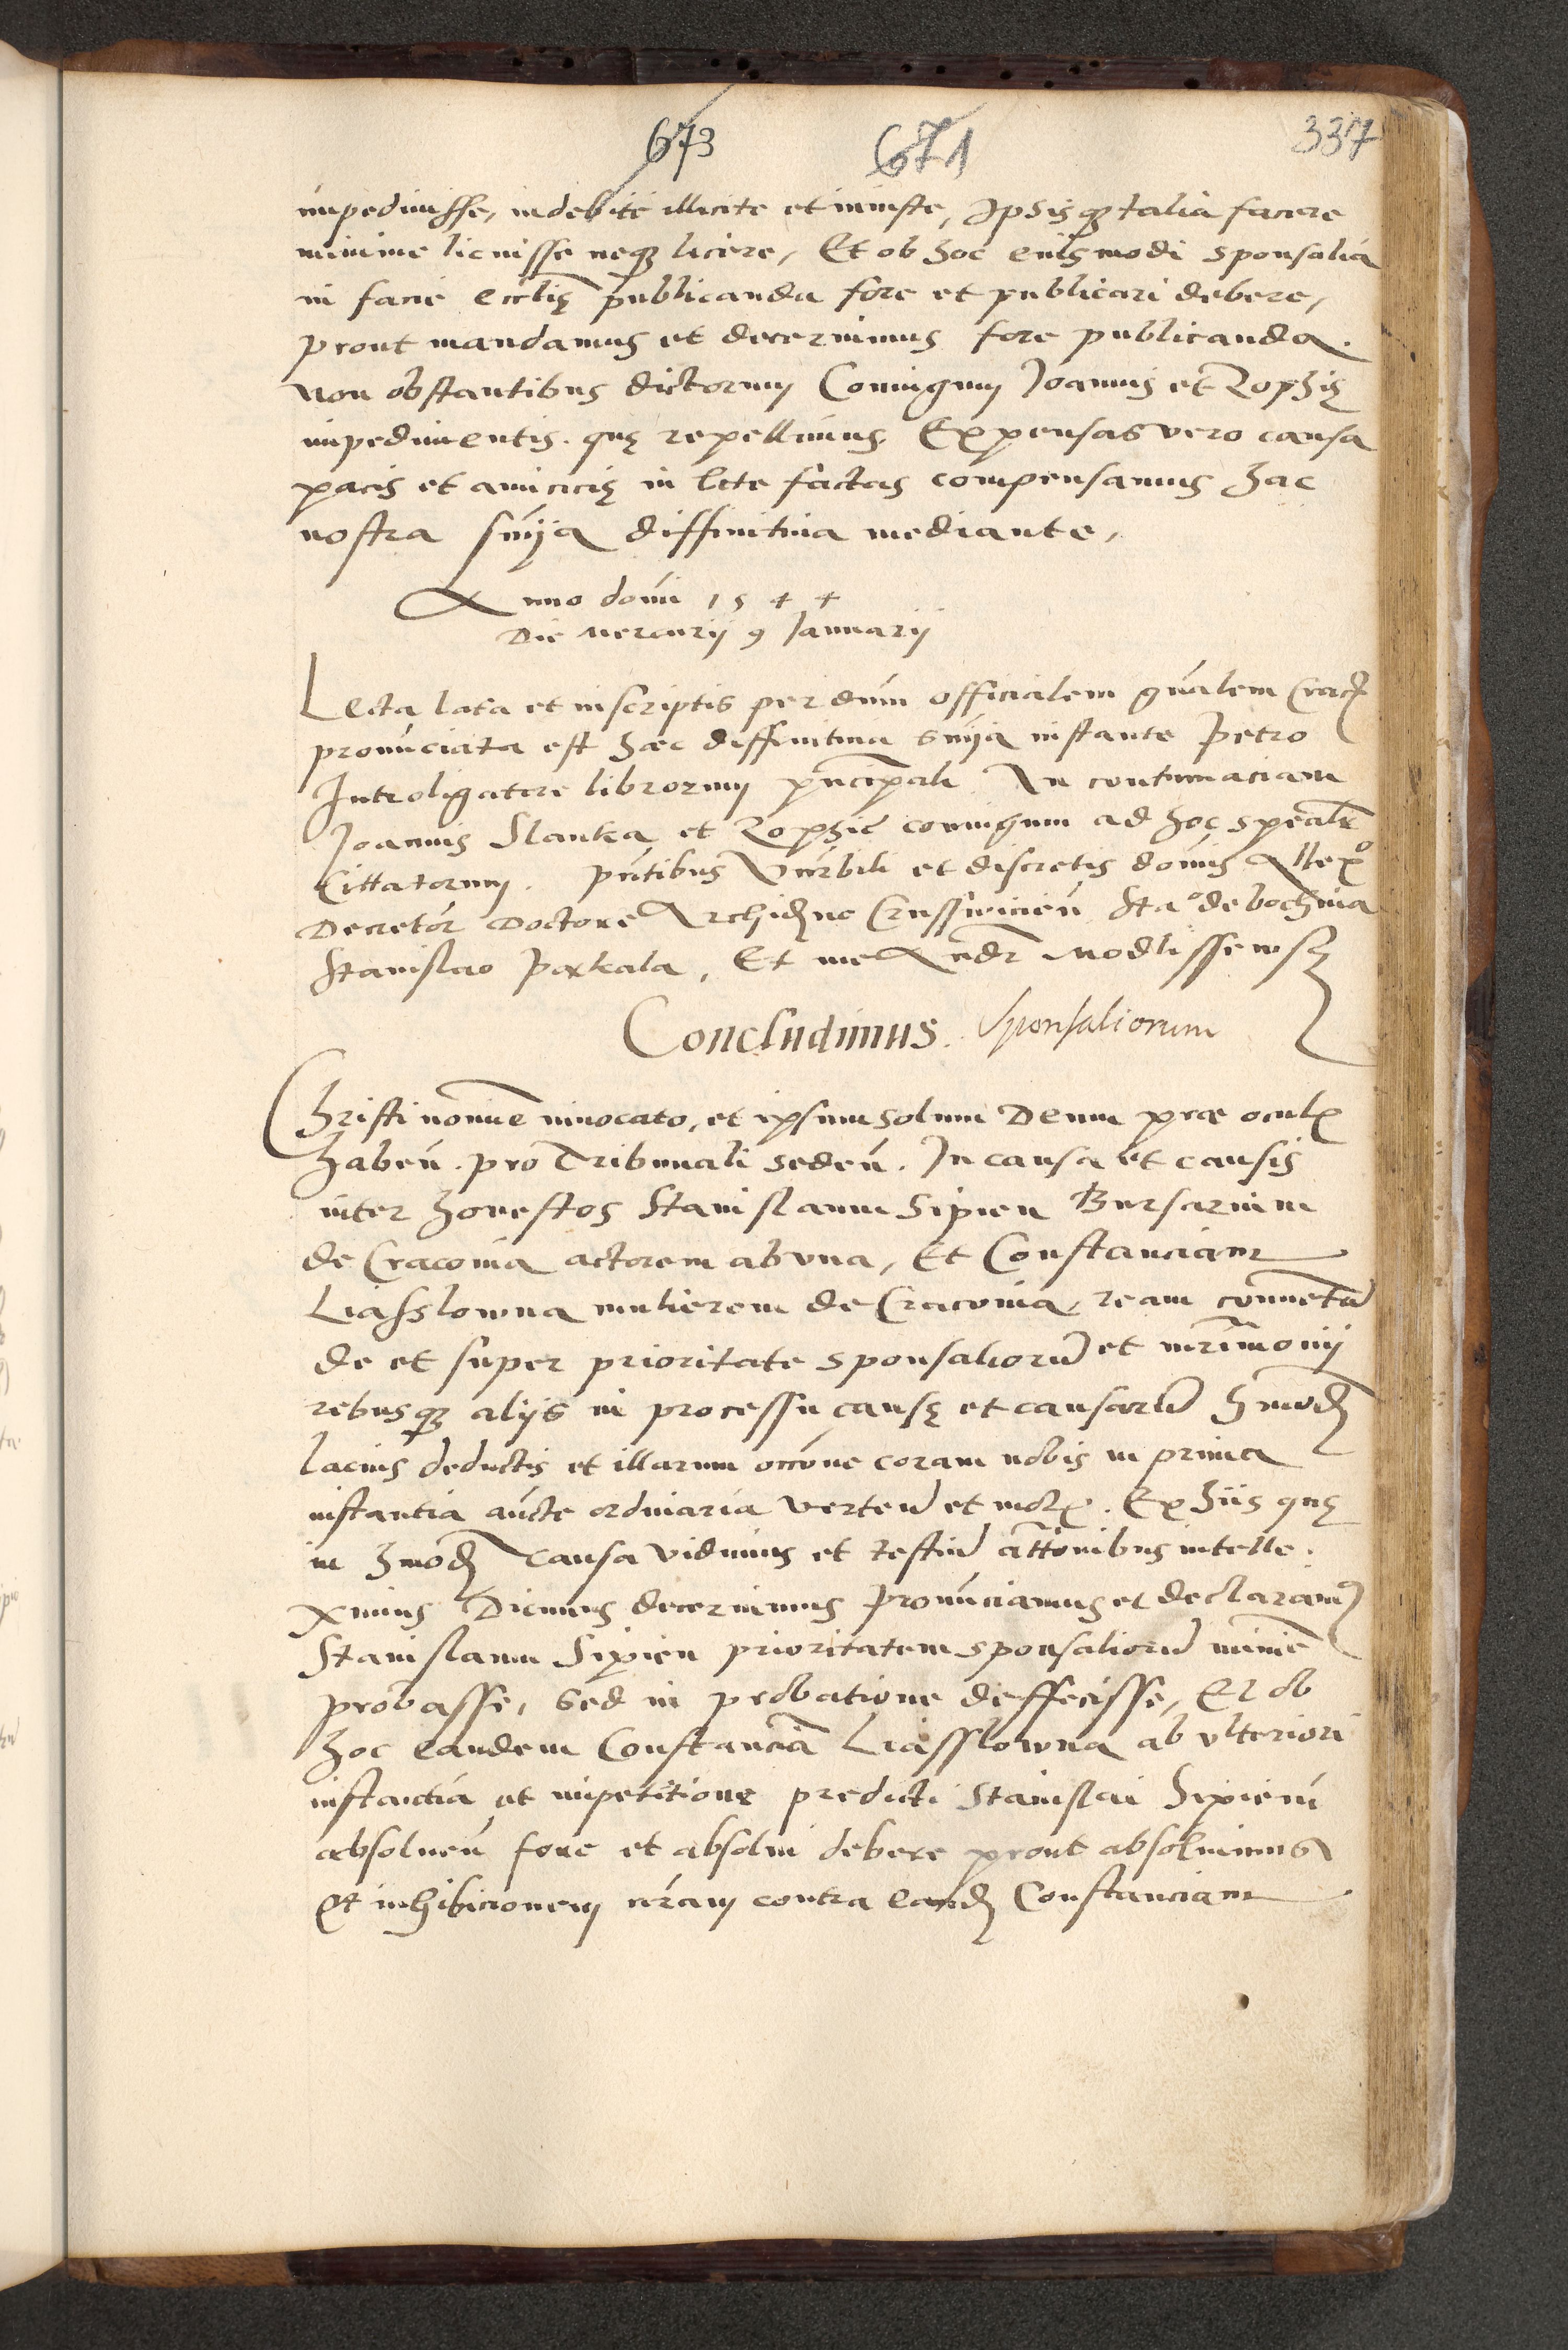 673 671 337
impedivisse, indebite illicite et iniuste, Ipsisq3 talia facere
minime licuisse neq3 licere, Et ob hoc euismodi sponsalia
in facie eccl̄ię publicanda fore et publicari debere,
prout mandamus et decernimus fore publicanda.
Non obstantibus dictorum Coniugum Joannis et Zophię
impedimentis. quę repellimus Expensas vero causa
pacis et amicicię in lite factas compensamus hac
nostra sn̄ija diffinitiua mediante,
Anno domi 1544
Die Mercurij 9 Januarij
Lecta lata et inscriptis per dnm̄ officialem gn̄alem Crac
pronunciata est haec deffinitiua sn̄ija instante Petro
Introligatore librorum prn̄cipali In contumaciam
Joannis Slanka et Zophie coniugum ad hoc sp̄ealr̄
Cittatorum. pn̄tibus Vn̄rbili et discretis domīs Allex°
Decretor̄ Doctore Archidn̄o Crusswicien̄ Sta° de bochnia
Stanislao Paxkala, Et me Andr̄ Modlissewsz
Concludimus. Sponsaliorum
Christi nomīe inuocato, et ipsum solum Deum prae oculis
haben̄. pro Tribunali seden̄. In causa et causis
inter honestos Stanislaum Sipien Bursarium
de Cracouia actorem ab vna, Et Constanciam
Liasslowna mulierem de Cracouia, ream conuetā
de et super prioritate sponsaliorū et mr̄imonij
rebusq3 alijs in processu causę et causarū hmōdi
lacius deductis et illarum occōne coram nobis in prima
instantia aucte ordinaria verten̄ et . Ex hiis quę
in hmōdi causa vidimus et testiū attōnibus intelle.
ximus Dicimus decernimus Pronunciamus et declaram9
Stanislaum Sipien prioritatem sponsaliorū minīe
probasse, sed in probatione deffecisse, Et ob
hoc eandem Constanciā Liasslowna ab vlteriori
instantia et impetitione predicti Stanislai Sipien̄
absoluen̄ fore et absolui debere prout absoluimus
Et inhibicionem nr̄am contra eand Constanciam